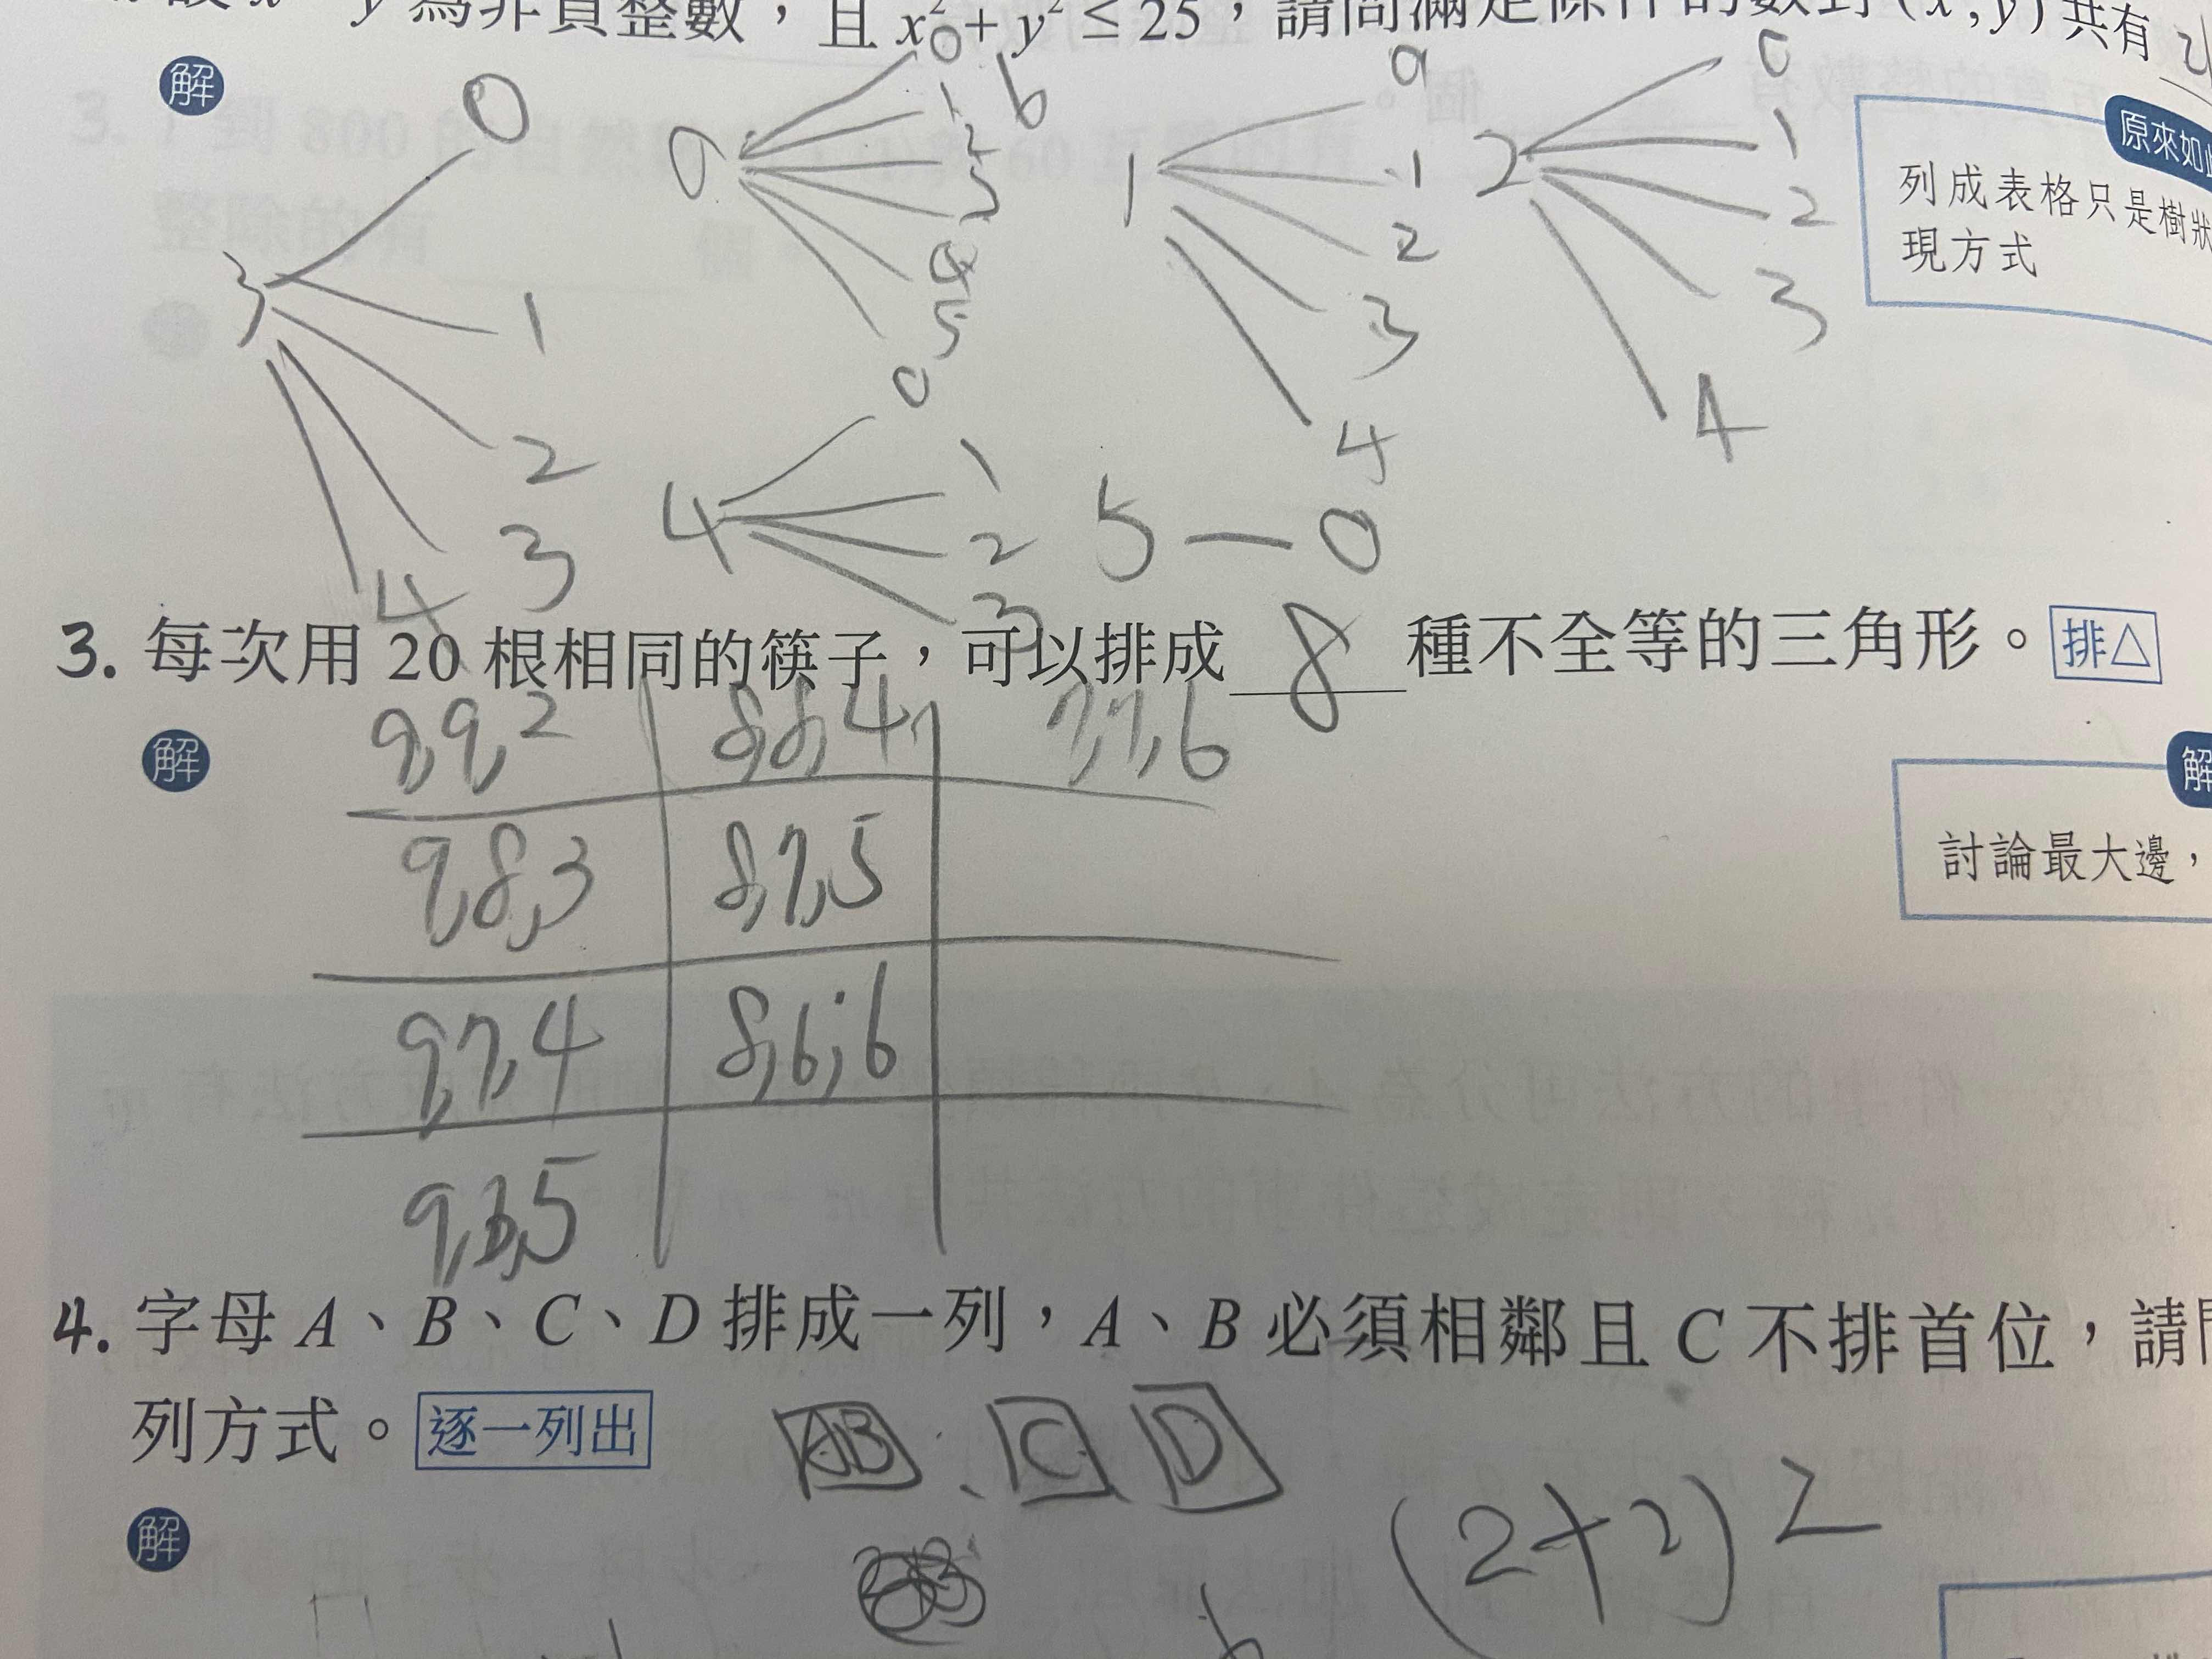 為非負整數，且 x² + y² ≤ 25，請問滿足條件的數對 (x , y) 共有
解
0
0 1 2 3 4 5
6
0
1
0 1 2 3 4
2
0 1 2 3 4
3
0 1 2 3 4
4
0 1 2 3
5 — 0
原來如此
列成表格只是樹狀
現方式
3. 每次用 20 根相同的筷子，可以排成 8 種不全等的三角形。 排△
解
9,9,2 8,8,4 7,7,6
9,8,3 8,7,5
9,7,4 8,6,6
9,6,5
解
討論最大邊，
4. 字母 A、B、C、D 排成一列，A、B 必須相鄰且 C 不排首位，請問
列方式。 逐一列出
AB C D
解
(2+2) 2
6